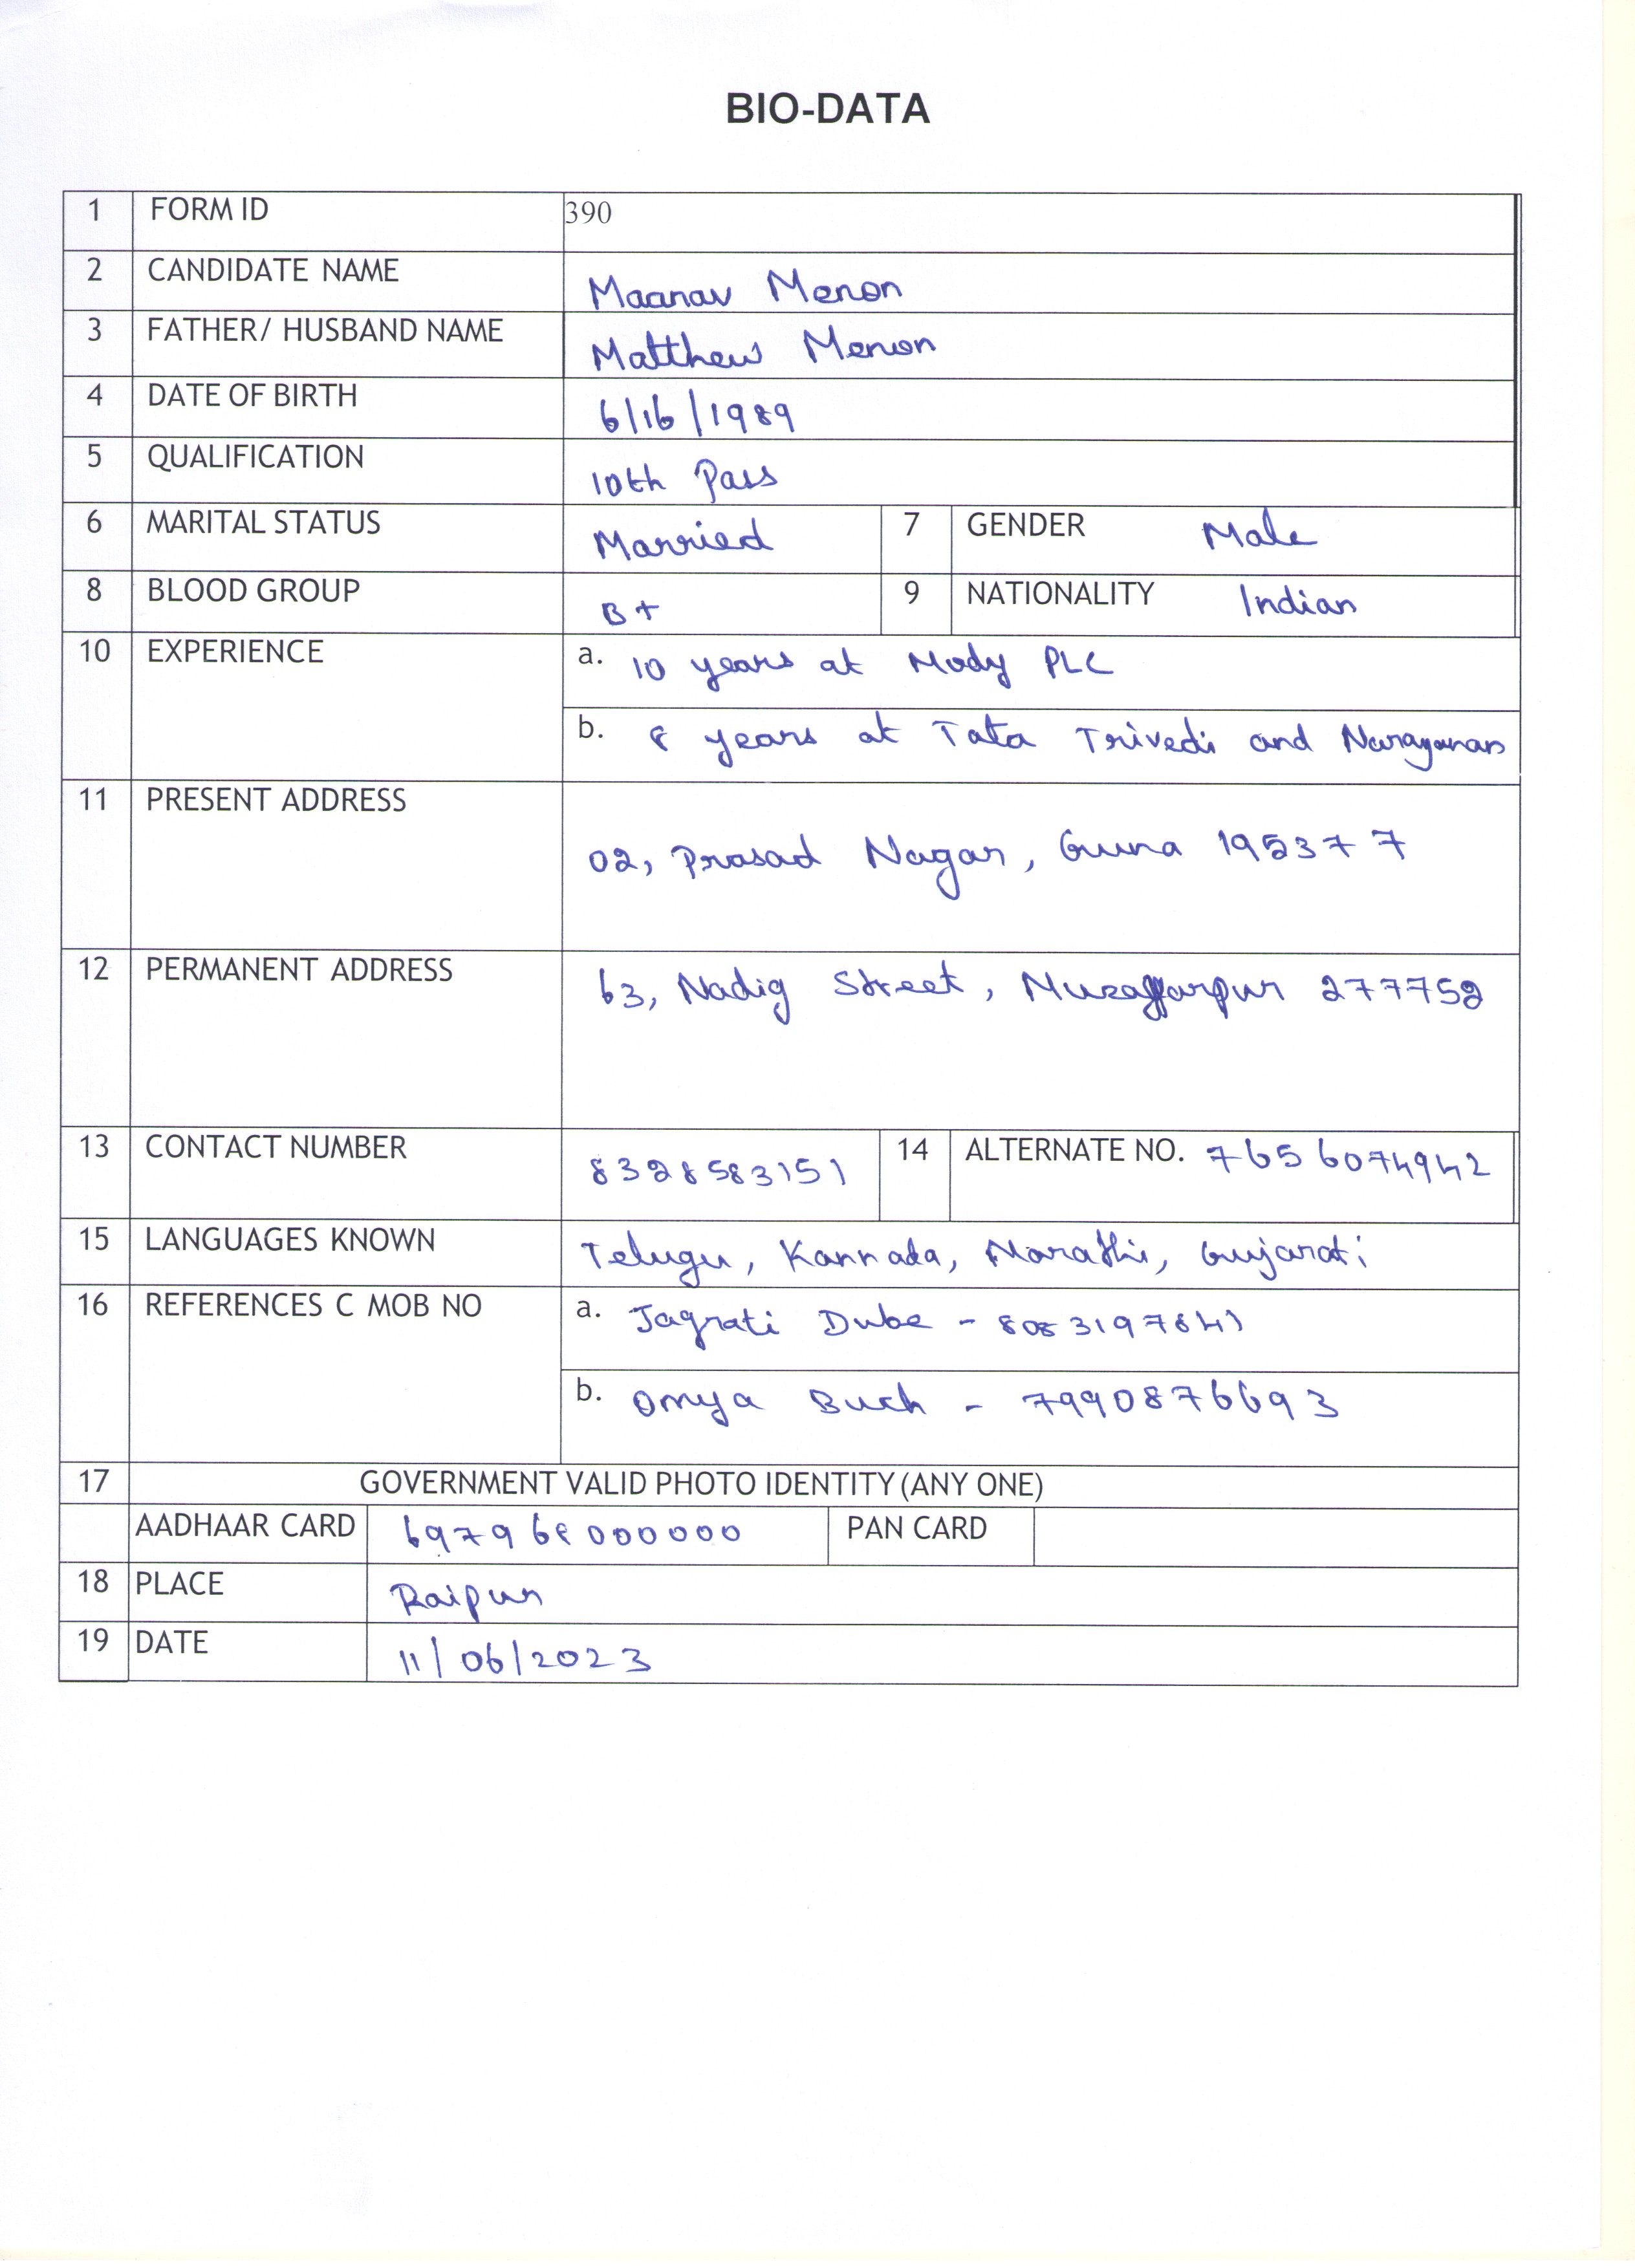 BIO-DATA
1 FORM ID 390
2 CANDIDATE NAME Maanav Menon
3 FATHER/ HUSBAND NAME Matthew Menon
4 DATE OF BIRTH 6/16/1989
5 QUALIFICATION 10th Pass
6 MARITAL STATUS Married 7 GENDER Male
8 BLOOD GROUP B+ 9 NATIONALITY Indian
10 EXPERIENCE a. 10 years at Mody PLC
b. 8 years at Tata Trivedi and Narayanan
11 PRESENT ADDRESS
02, Prasad Nagar, Guna 195377
12 PERMANENT ADDRESS 63, Nadig Street, Muzaffarpur 277752
13 CONTACT NUMBER 8328583151 14 ALTERNATE NO. 7656074942
15 LANGUAGES KNOWN Telugu, Kannada, Marathi, Gujarati
16 REFERENCES C MOB NO a. Jagrati Dube - 8083197641
b. Omya Buch - 7990876693
17 GOVERNMENT VALID PHOTO IDENTITY (ANY ONE)
AADHAAR CARD 697968000000 PAN CARD
18 PLACE Raipur
19 DATE 11/06/2023